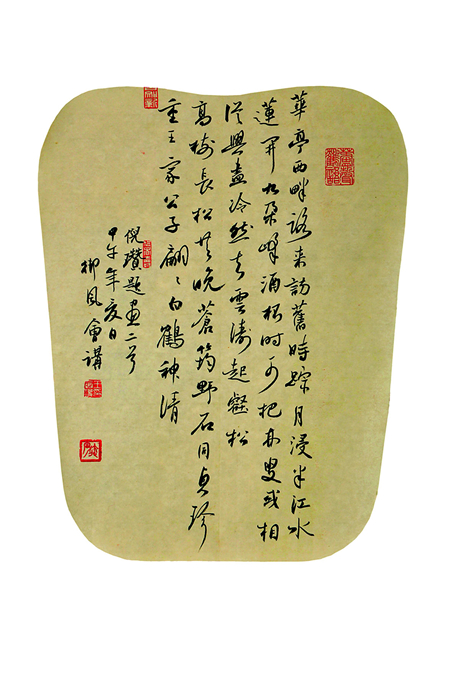 華亭西畔路来訪舊時踪月浸半江水
蓮開九朶峰酒杯時可把林叟或相
從興盡冷然去雲濤起壑松
高樹長松共晚蒼筠野石同貞珍
重王家公子翩〻白鶴神清
倪瓚题畫二首
甲午年夏日
柳風會講